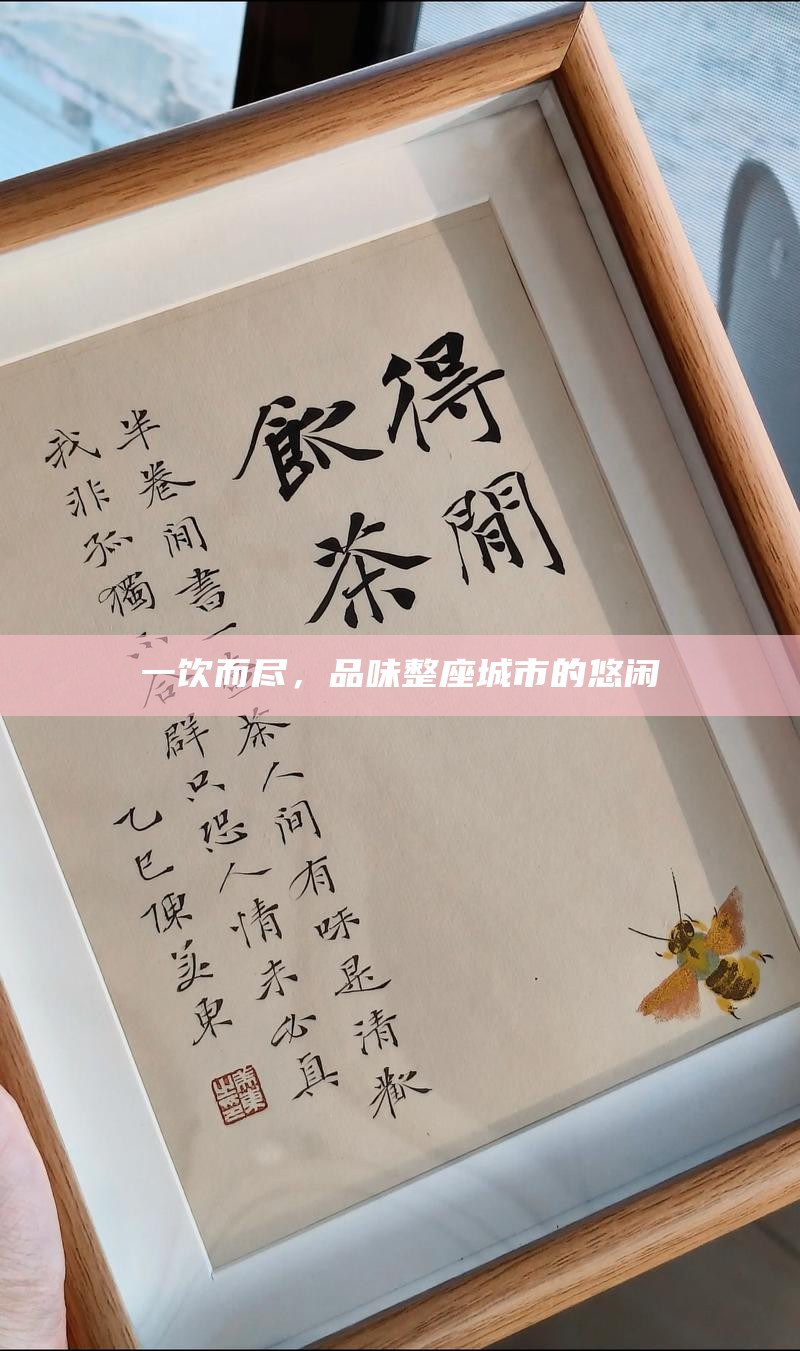 得閒
飲茶
半卷閒書一壺茶人间有味是清歡
我非孤獨不合群只恐人情未必真
乙巳陳美東
美東之印
一饮而尽，品味整座城市的悠闲